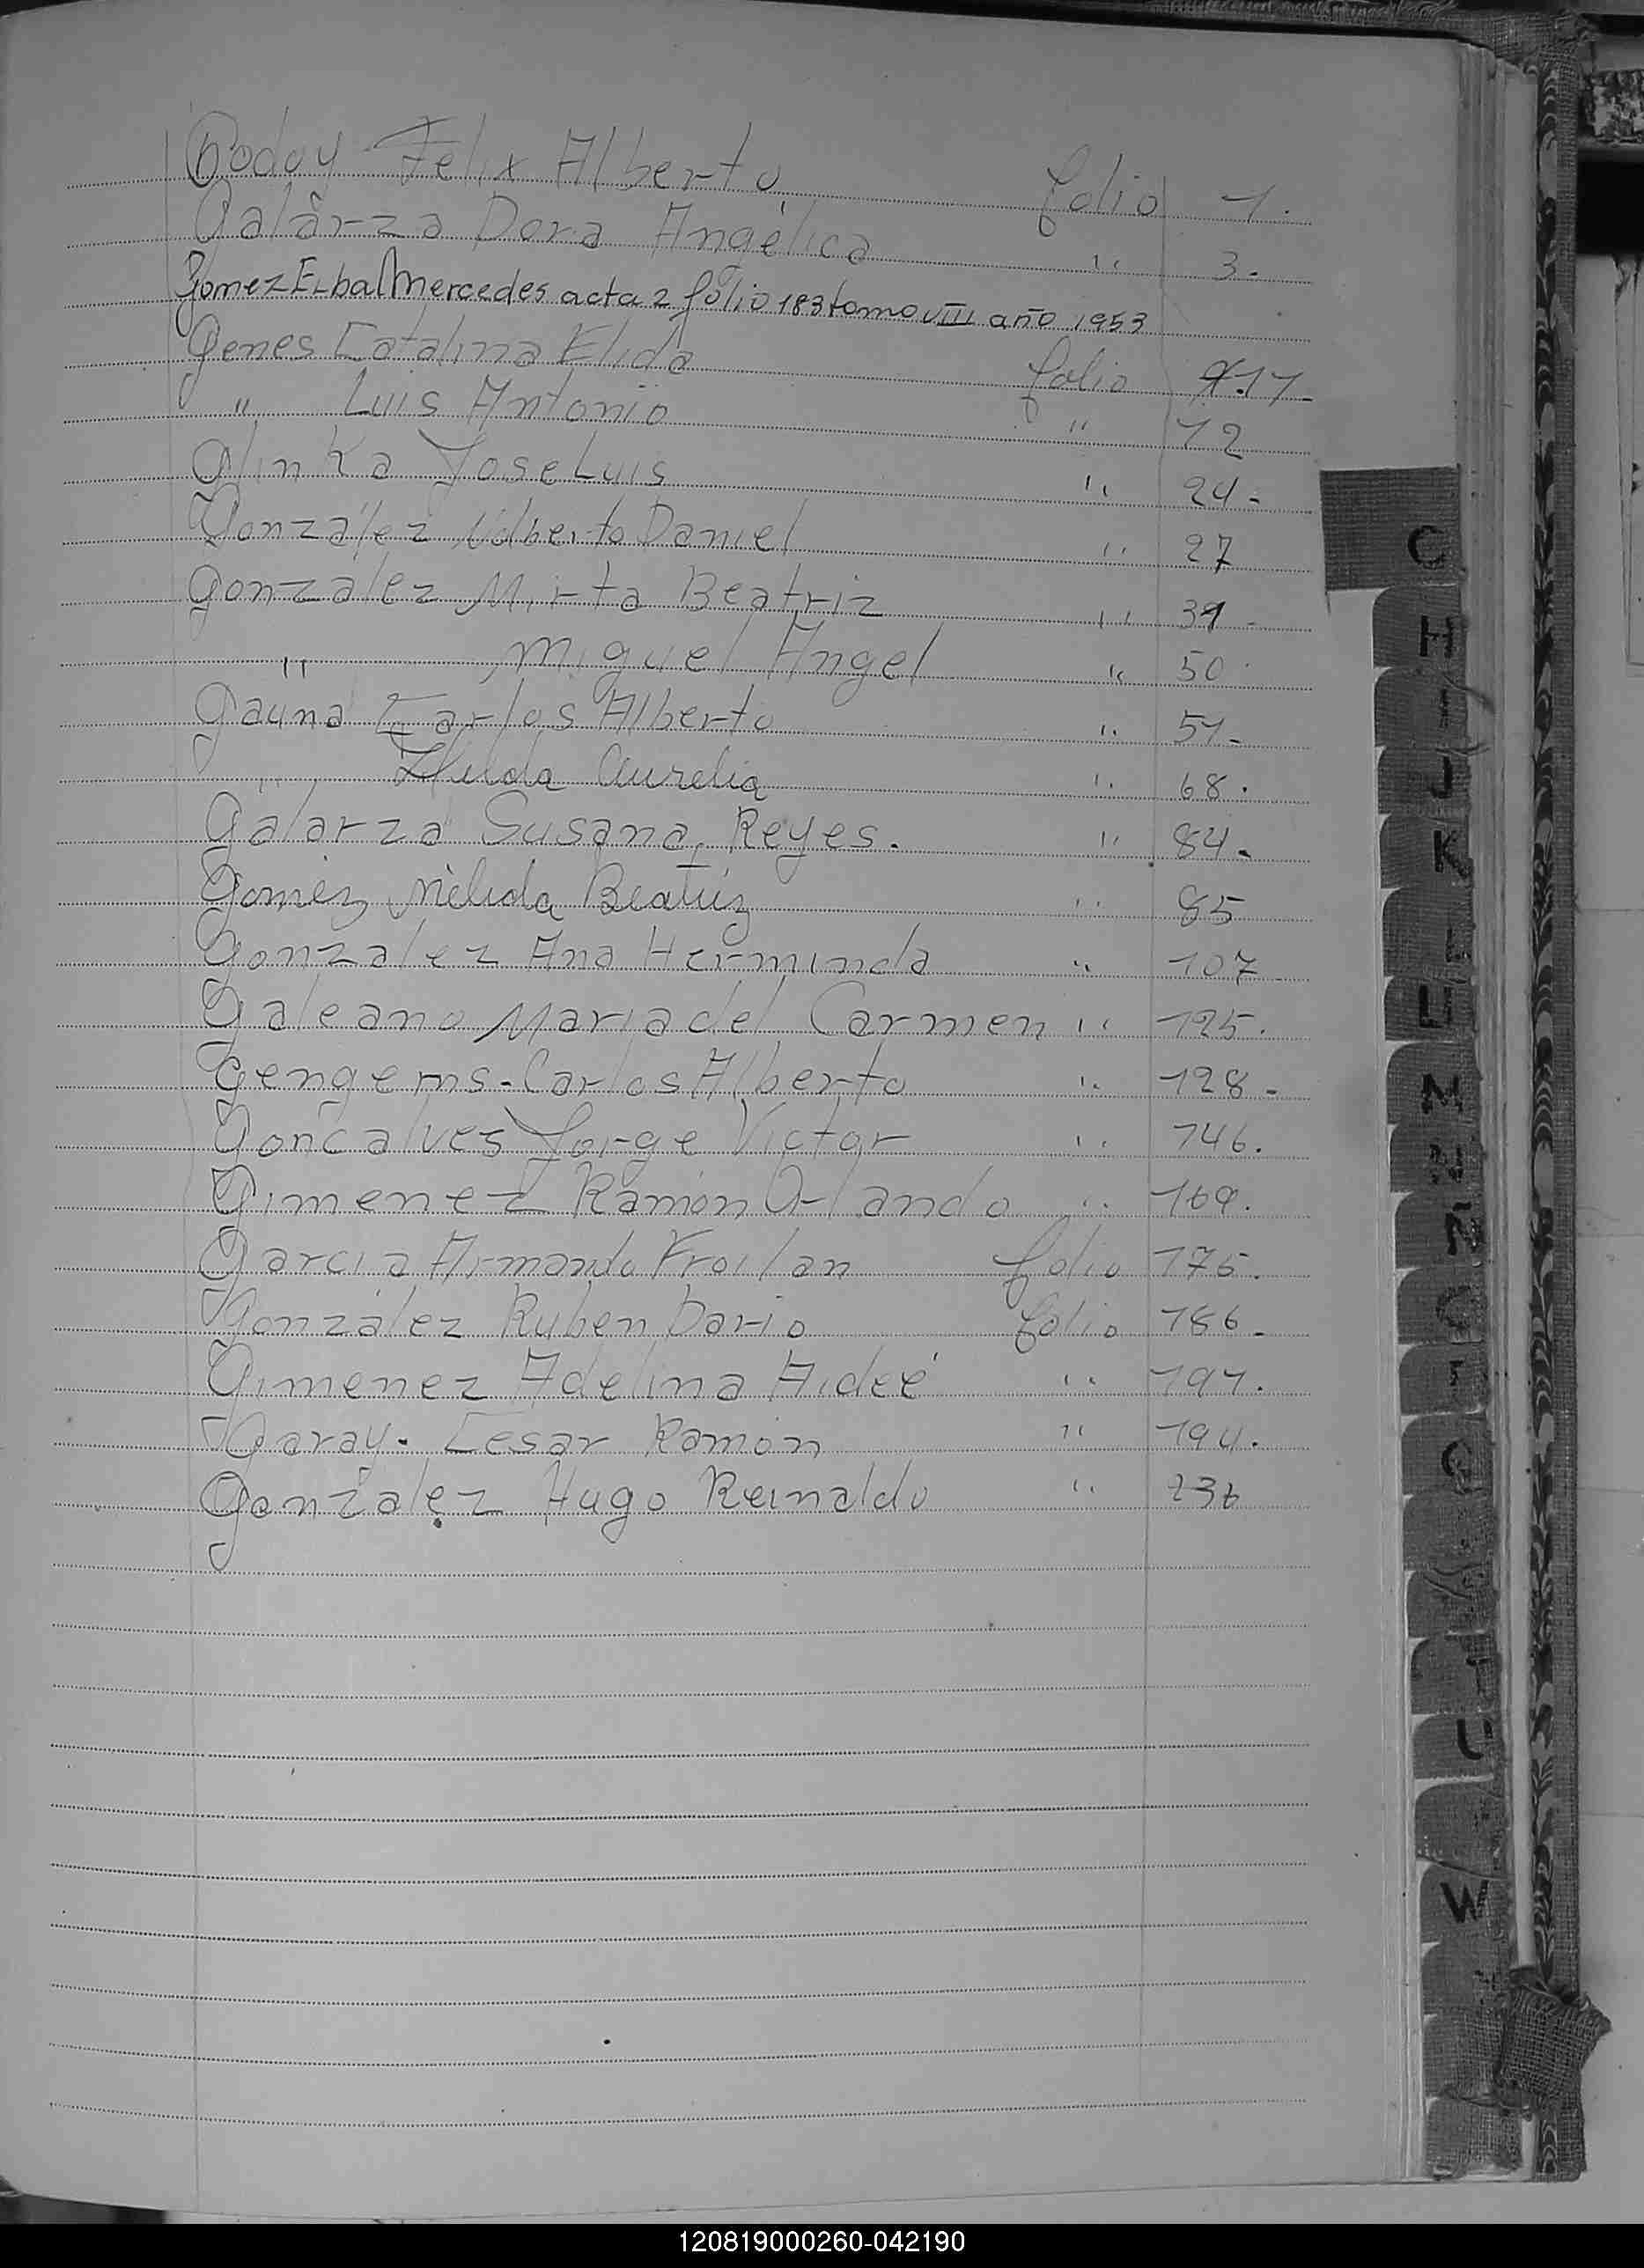 Godoy Felix Alberto folio 1.
Galarza Dora Angélica " 3.
Gomez Elba Mercedes acta 2 folio 183 tomo VIII año 1953
Genes Catalina Elida folio 11.
" Luis Antonio " 12
Glinka Jose Luis " 24.
González Daniel " 27
González Mirta Beatriz " 39
" Miguel Angel " 50
Gauna Carlos Alberto " 51.
" Hilda Aurelia " 68.
Galarza Susana Reyes. " 84.
Gomez Nélida Beatriz " 85
Gonzalez Ana Herminda " 107
Galeano Maria del Carmen " 125.
Carlos Alberto " 128.
Goncalves Jorge Victor " 146.
Gimenez Ramón Orlando " 169.
Garcia Armando Froilan folio 175.
González Ruben Dario folio 186.
Gimenez Adelina Aideé " 191.
Garay. Cesar Ramón " 194.
González Hugo Reinaldo " 236
C
H
I
J
K
L
LL
M
N
Ñ
O
P
Q
T
U
W
120819000260-042190